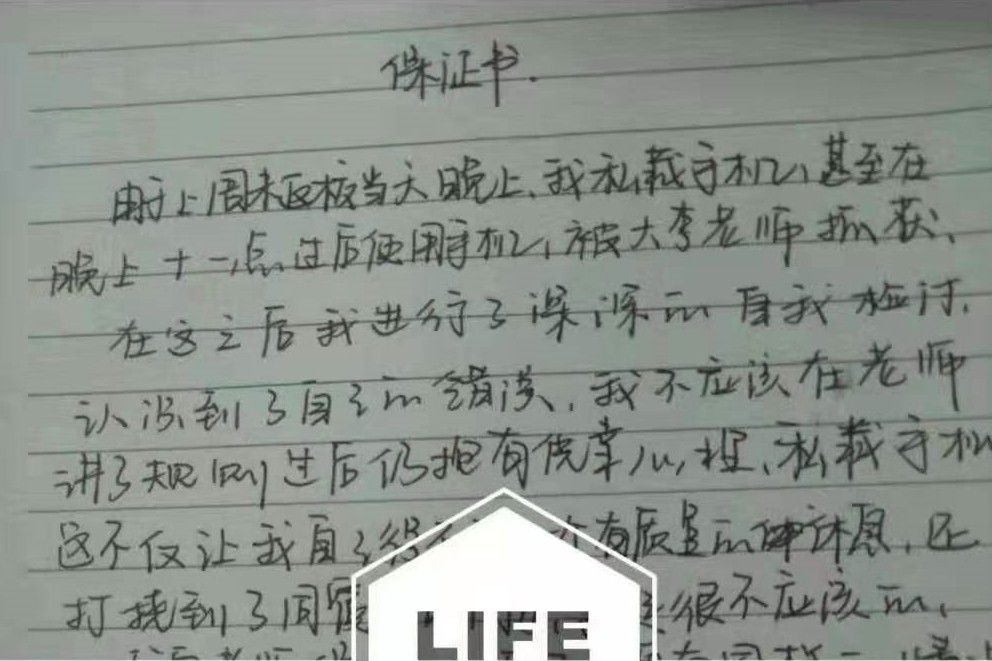 保证书.
由于上周末返校当天晚上,我私藏手机,甚至在
晚上十一点过后使用手机,被大李老师抓获,
在这之后我进行了深深的自我检讨,
认识到了自己的错误,我不应该在老师
讲了规则过后仍抱有侥幸心理,私藏手机
这不仅让我自己得不 有质量的 休息,还
打扰到了同寝 很不应该的,
LIFE